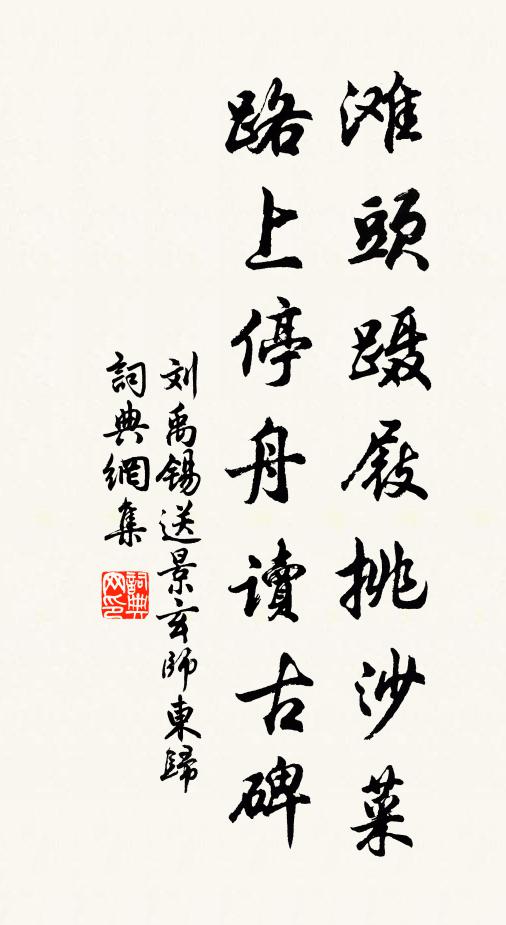 滩頭蹑屐挑沙菜
路上停舟讀古碑
刘禹锡送景玄師東歸
詞典網集
詞典
网印